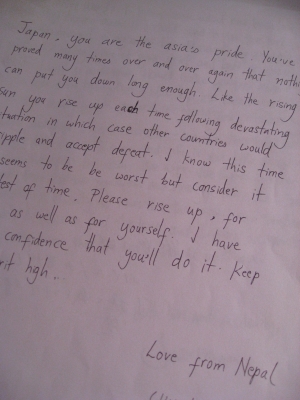 Japan, you are the asia's pride. You've
proved many times over and over again that
can put you down long enough. Like the rising
you rise up each time following devastating
in which case other countries would
and accept defeat. I know this time
seems to be be worst but consider it
of time. Please rise up, for
as well as for yourself. I have
confidence that you'll do it. Keep
hgh..
Love from Nepal